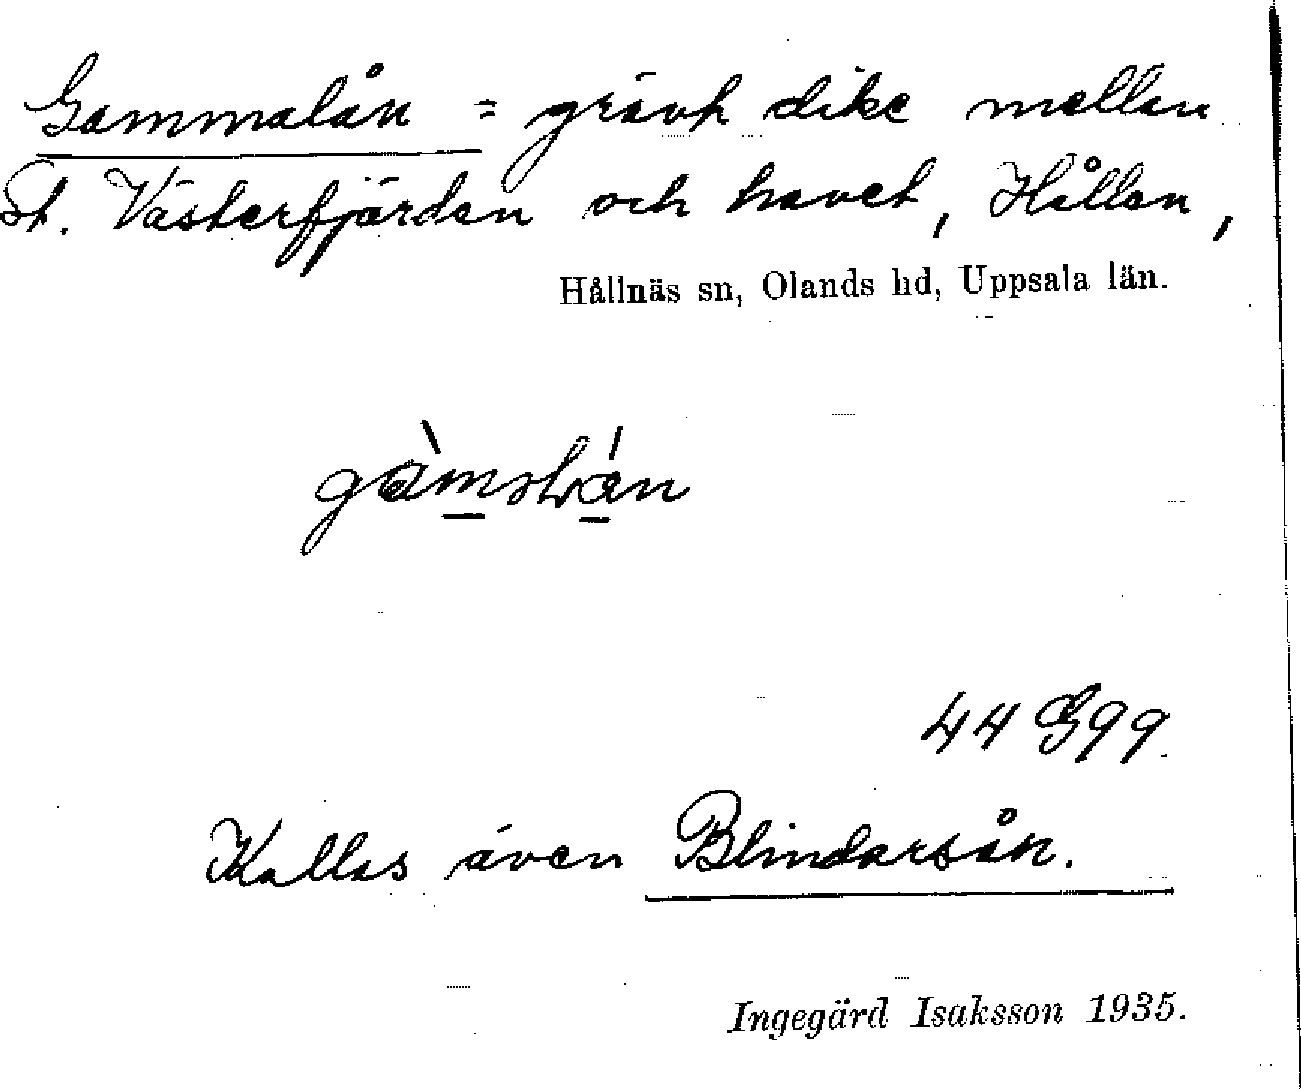 Gammalån = grävt dike mellan
St. Västerfjärden och havet, Hållen,
Hållnäs sn, Olands hd, Uppsala län.
44 G99
Kallas även Blindarsån.
Ingegärd Isaksson 1935.